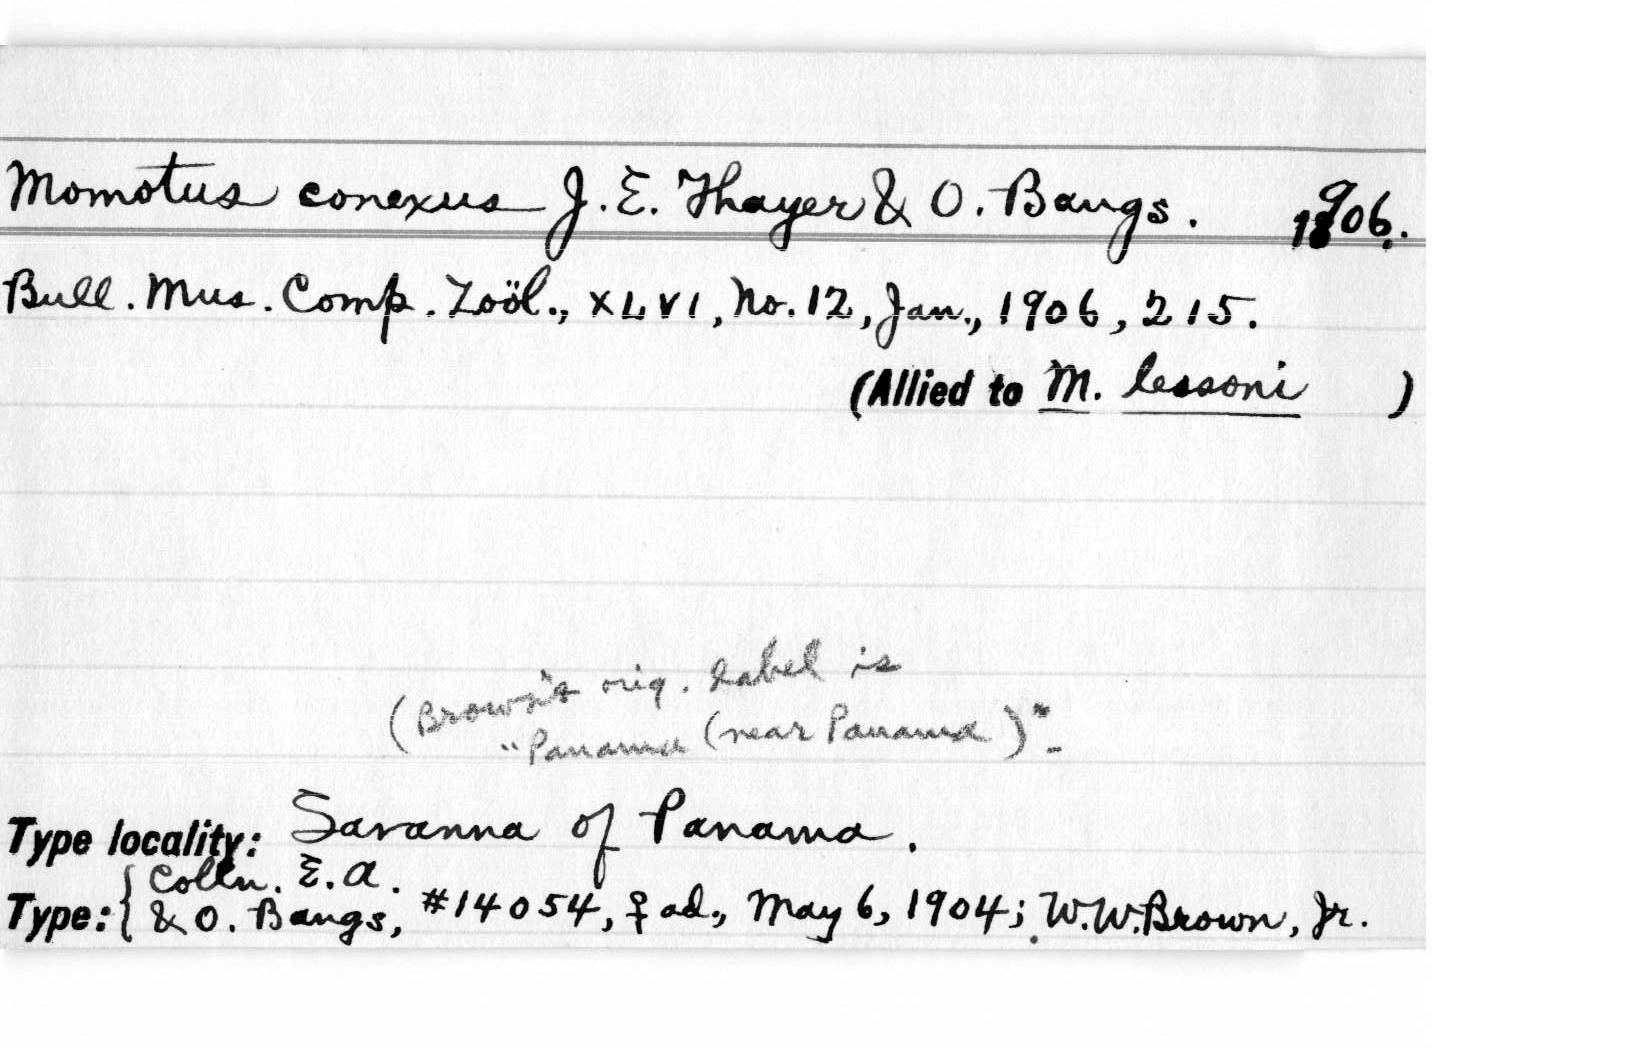 Momotus conexus J. E. Thayer & O. Bangs. 1906.
Bull. Mus. Comp. Zoöl., XLVI, No. 12, Jan., 1906, 215.
(Allied to M. lessoni )
(Brown's orig. label is
"Panama (near Panama)".
Type locality: Savanna of Panama.
Type: { Colln. E. A.
& O. Bangs, #14054, ♀ ad., May 6, 1904; W. W. Brown, Jr.